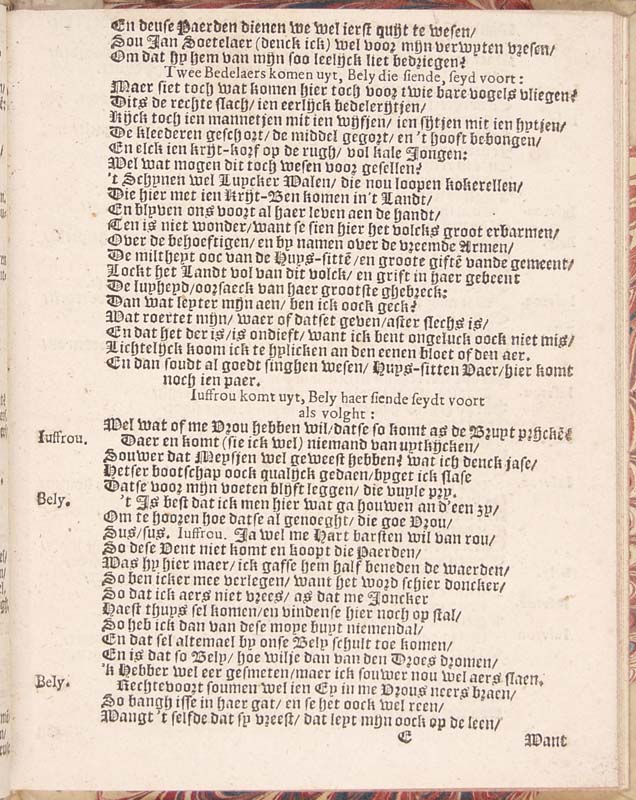 En deuse Paerden dienen we wel ierst quijt te wesen/
Sou Jan Soetelaer (denck ick) wel voor mijn verwyten vresen/
Om dat hy hem van mijn soo leelijck liet bedriegen?
Twee Bedelaers komen uyt, Bely die siende, seyd voort:
Maer siet toch wat komen hier toch voor twie bare vogels vliegen?
Dits de rechte slach/ ien eerlijck bedelerijtjen/
Kijck toch ien mannetjen mit ien wijfjen/ ien sijtjen mit ien hytjen/
De kleederen geschort/ de middel gegort/ en 't hooft bebongen/
En elck ien krijt-korf op de rugh/ vol kale Jongen:
Wel wat mogen dit toch wesen voor gesellen?
't Schijnen wel Luycker Walen/ die nou loopen kokerellen/
Die hier met ien Krijt-Ben komen in't Landt/
En blyven ons voort al haer leven aen de handt/
Ten is niet wonder/ want se sien hier het volcks groot erbarmen/
Over de behoeftigen/ en by namen over de vreemde Armen/
De miltheyt ooc van de Huys-sittē/ en groote giftē vande gemeent/
Lockt het Landt vol van dit volck/ en grift in haer gebeent
De luyheyd/ oorsaeck van haer grootste ghebreck:
Dan wat leyter mijn aen/ ben ick oock geck?
Wat roertet mijn/ waer of datset geven/ aster slechs is/
En dat het der is/ is ondieft/ want ick bent ongeluck oock niet mis/
Lichtelijck koom ick te hylicken an den eenen bloet of den aer.
En dan soudt al goedt singhen wesen/ Huys-sitten Vaer/ hier komt
noch ien paer.
Iuffrou komt uyt, Bely haer siende seydt voort
als volght:
Wel wat of me Vrou hebben wil/ datse so komt as de Bruyt prijckē?
Iuffrou. Daer en komt (sie ick wel) niemand van uytkijcken/
Souwer dat Meysjen wel geweest hebben? wat ich denck jase/
Hetser bootschap oock qualijck gedaen/ byget ick slase
Datse voor mijn voeten blijft leggen/ die vuyle pry.
Bely. 't Is best dat ick men hier wat ga houwen an d'een zy/
Om te hooren hoe datse al genoeght/ die goe Vrou/
Sus/sus. Iuffrou. Ja wel me Hart barsten wil van rou/
So dese Vent niet komt en koopt die Paerden/
Was hy hier maer/ ick gafse hem half beneden de waerden/
So ben icker mee verlegen/ want het word schier doncker/
So dat ick aers niet vrees/ as dat me Joncker
Haest thuys sel komen/ en vindense hier noch op stal/
So heb ick dan van dese moye buyt niemendal/
En dat sel altemael by onse Bely schult toe komen/
En is dat so Bely/ hoe wilje dan van den Droes dromen/
'k Hebber wel eer gesmeten/ maer ick souwer nou wel aers slaen.
Bely. Rechtevoort soumen wel ien Ey in me Vrous neers braen/
So bangh isse in haer gat/ en se het oock wel reen/
Wangt 't selfde dat sy vreest/ dat leyt mijn oock op de leen/
E Want